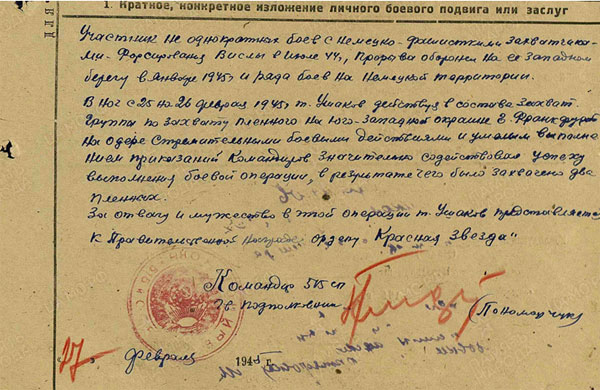 1. Краткое, конкретное изложение личного боевого подвига или заслуг
Участник не однократных боев с Немецко-фашисткими захватчика-
ми-Форсирования Вислы в июле 44г, Прорыва обороны на ее западном
берегу в Январе 1945г и ряда боев на Немецкой территории.
В ночь с 25 на 26 февраля 1945г т. Ушаков действуя в составе захват.
Группы по захвату пленного на юго-западной окраине г. Франкфурта
на Одере Стремительными боевыми действиями и умелым выполне
нием приказаний Командиров Значительно содействовал успеху
выполнения боевой операции, в результате чего было захвачено два
пленных.
За отвагу и мужество в этой операции т. Ушаков представляется
к Правительственной награде ордену "Красная Звезда"
Командир 575 сп
Гв. подполковник
(Пономарчук)
27 февраля 1945г.